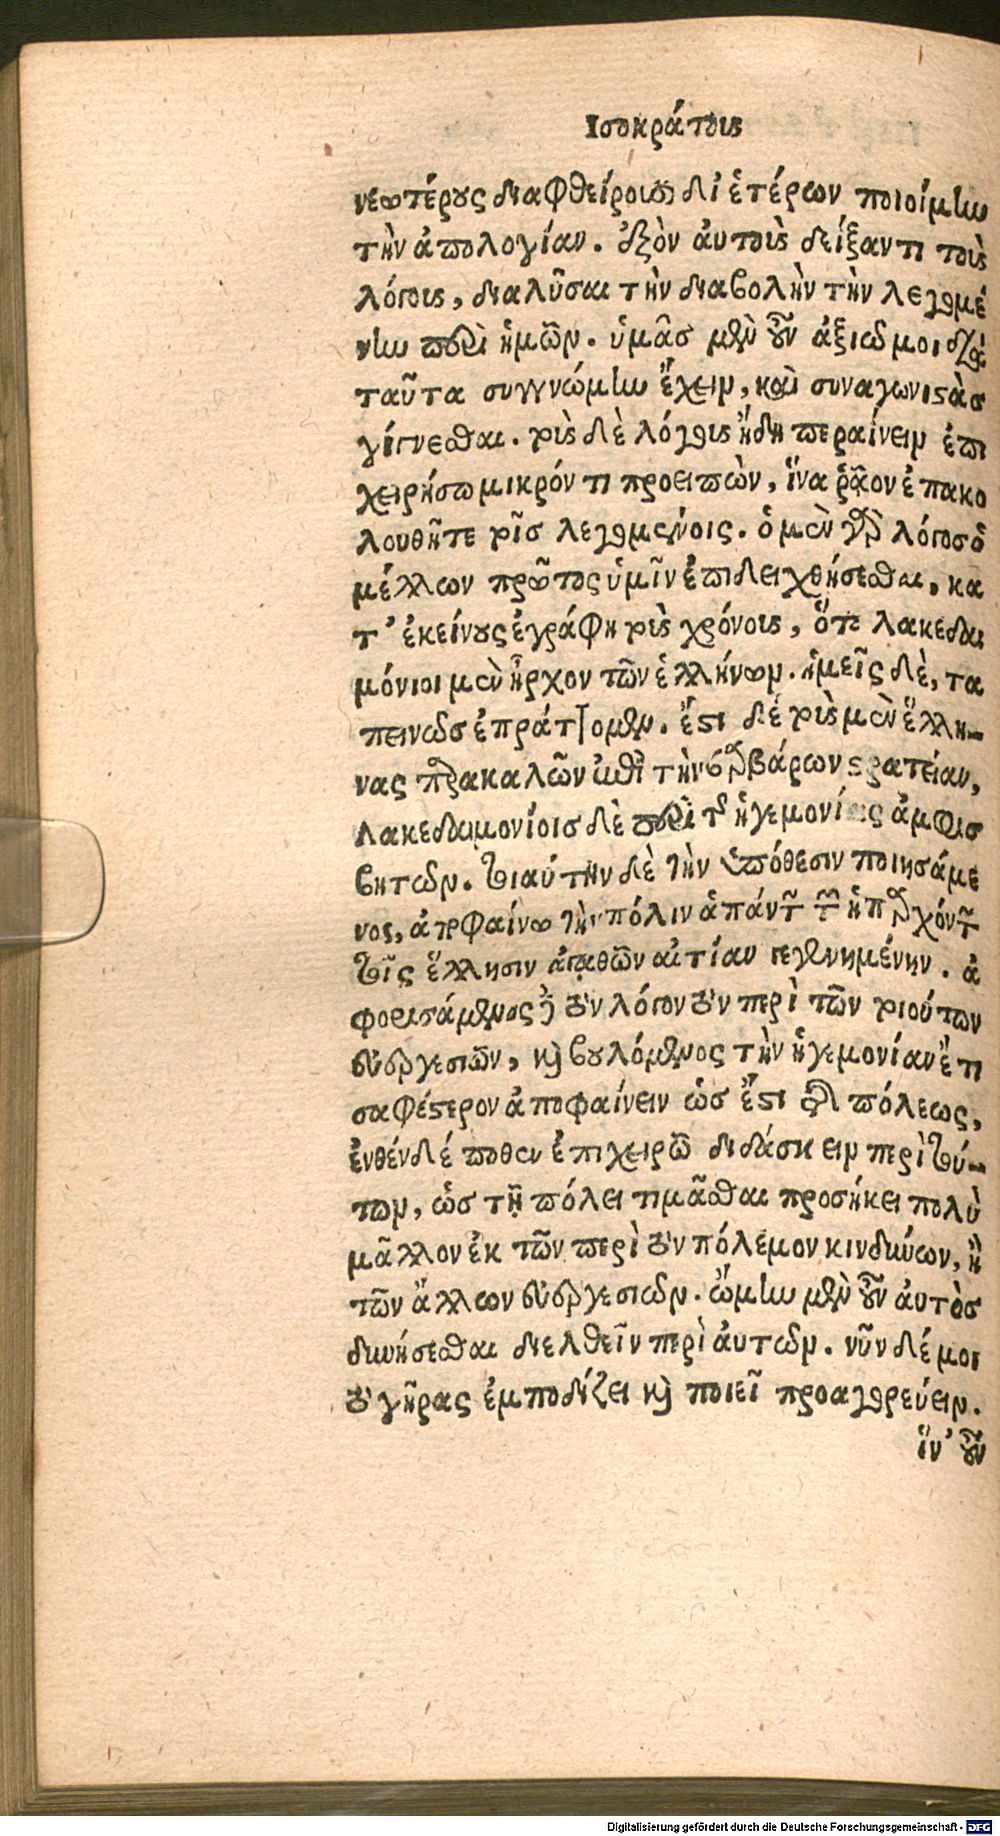 Ισοκράτους
νεωτέρους διαφθείροιμι, δι' ἑτέρων ποιοίμην
τὴν ἀπολογίαν. ἐξὸν αὐτοὺς δείξαντι τοὺς
λόγους, διαλῦσαι τὴν διαβολὴν τὴν λεγομέ
νην περὶ ἡμῶν. ὑμᾶσ μὲν οὖν ἀξιῶ μοι διὰ
ταῦτα συγγνώμην ἔχειν, καὶ συναγωνιστὰσ
γίγνεσθαι. τοὺς δὲ λόγους ἤδη περαίνειν ἐπι
χειρήσω μικρόν τι προειπὼν, ἵνα ῥᾷον ἐπακο
λουθῆτε τοῖσ λεγομένοις. ὁ μὲν γὰρ λόγοσ ὁ
μέλλων πρῶτος ὑμῖν ἐπιδειχθήσεσθαι, κα
τ' ἐκείνους ἐγράφη τοὺς χρόνους, ὅτε λακεδαι
μόνιοι μὲν ἦρχον τῶν ἑλλήνων. ἡμεῖς δὲ, τα
πεινῶσ ἐπράττομεν. ἔστι δὲ τοὺς μὲν ἕλλη-
νας παρακαλῶν ἐπὶ τὴν βαρβάρων στρατείαν,
λακεδαιμονίοισ δὲ περὶ τῆς ἡγεμονίας ἀμφισ
βητῶν. τοιαύτην δὲ τὴν ὑπόθεσιν ποιησάμε
νος, ἀποφαίνω τὴν πόλιν ἁπάντων τῶν ὑπαρχόντων
τοῖς ἕλλησιν ἀγαθῶν αἰτίαν γεγενημένην. ἀ
φορισάμενος δὲ τὸν λόγον τὸν περὶ τῶν τοιούτων
εὐεργεσιῶν, καὶ βουλόμενος τὴν ἡγεμονίαν ἔτι
σαφέστερον ἀποφαίνειν ὡσ ἔστι τῆς πόλεως,
ἐνθένδέ ποθεν ἐπιχειρῶ διδάσκειν περὶ τού-
των, ὡσ τῇ πόλει τιμᾶσθαι προσήκει πολὺ
μᾶλλον ἐκ τῶν περὶ τὸν πόλεμον κινδύνων, ἢ
τῶν ἄλλων εὐεργεσιῶν. ᾤμην μὲν οὖν αὐτὸσ
δυνήσεσθαι διελθεῖν περὶ αὐτῶν. νῦν δέ μοι
τὸ γῆρας ἐμποδίζει καὶ ποιεῖ προαγορεύειν.
ἵν' οὖν
Digitalisierung gefördert durch die Deutsche Forschungsgemeinschaft - DFG